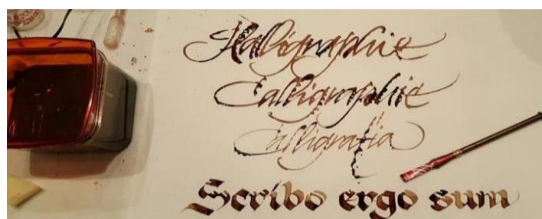 Kalligraphie
Calligraphie
Calligrafia
Scribo ergo sum